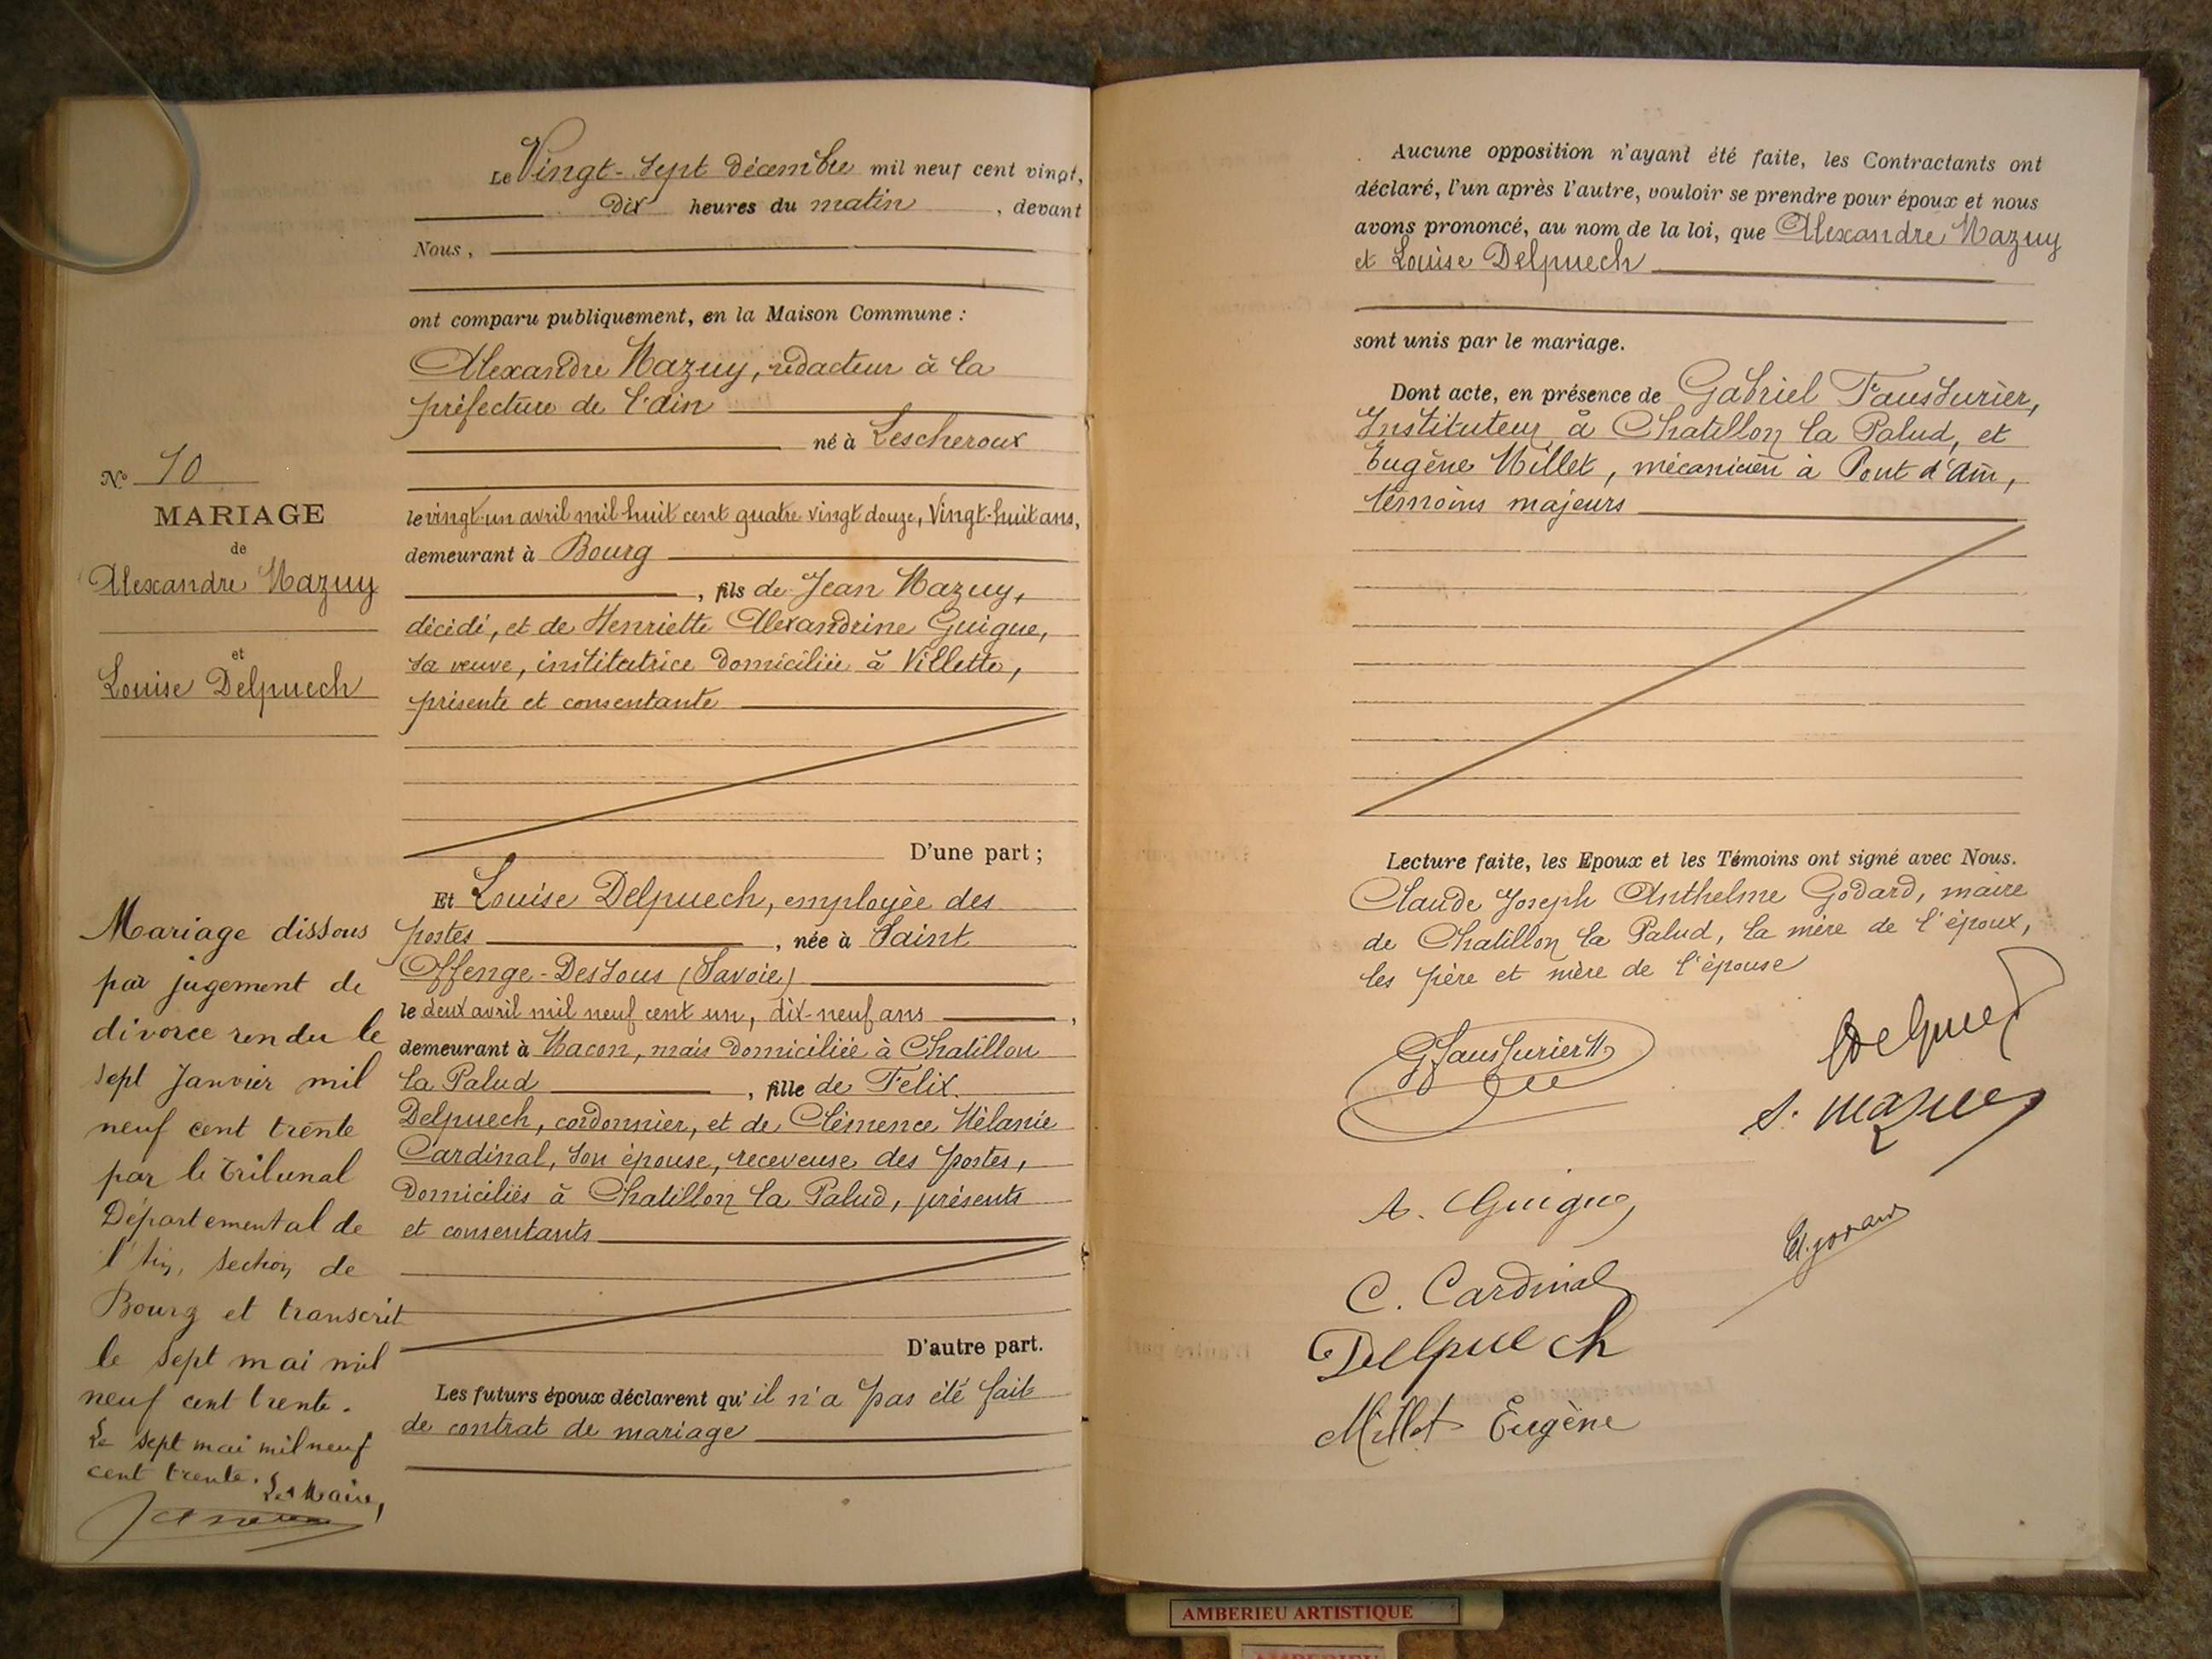 Le Vingt-sept décembre mil neuf cent vingt,
Dix heures du matin, devant
Nous,
ont comparu publiquement, en la Maison Commune :
Alexandre Mazuy, rédacteur à la
préfecture de l'Ain
né à Lescheroux
le vingt-un avril mil huit cent quatre vingt douze, Vingt-huit ans,
demeurant à Bourg
, fils de Jean Mazuy,
décédé, et de Henriette Alexandrine Guigue,
sa veuve, institutrice domiciliée à Villette,
présente et consentante
D'une part ;
Et Louise Delpuech, employée des
postes, née à Saint
Offenge-Dessous (Savoie)
le deux avril mil neuf cent un, dix-neuf ans,
demeurant à Macon, mais domiciliée à Chatillon
la Palud, fille de Felix
Delpuech, cordonnier, et de Clémence Mélanie
Cardinal, son épouse, receveuse des postes,
domiciliés à Chatillon la Palud, présents
et consentants
D'autre part.
Les futurs époux déclarent qu'il n'a pas été fait
de contrat de mariage
No 10
MARIAGE
de
Alexandre Mazuy
et
Louise Delpuech
Mariage dissous
par jugement de
divorce rendu le
sept Janvier mil
neuf cent trente
par le Tribunal
Départemental de
l'Ain, section de
Bourg et transcrit
le sept mai mil
neuf cent trente.
Le sept mai mil neuf
cent trente. Le Maire,
Aucune opposition n'ayant été faite, les Contractants ont
déclaré, l'un après l'autre, vouloir se prendre pour époux et nous
avons prononcé, au nom de la loi, que Alexandre Mazuy
et Louise Delpuech
sont unis par le mariage.
Dont acte, en présence de Gabriel Faussurier,
Instituteur à Chatillon la Palud, et
Eugène Millet, mécanicien à Pont d'Ain,
témoins majeurs
Lecture faite, les Epoux et les Témoins ont signé avec Nous.
Claude Joseph Anthelme Godard, maire
de Chatillon la Palud, la mère de l'époux,
les père et mère de l'épouse
G Faussurier
Delpuech
A. Mazuy
A. Guigue
C. Cardinal
Delpuech
Millet Eugène
AMBERIEU ARTISTIQUE
AMBERIEU